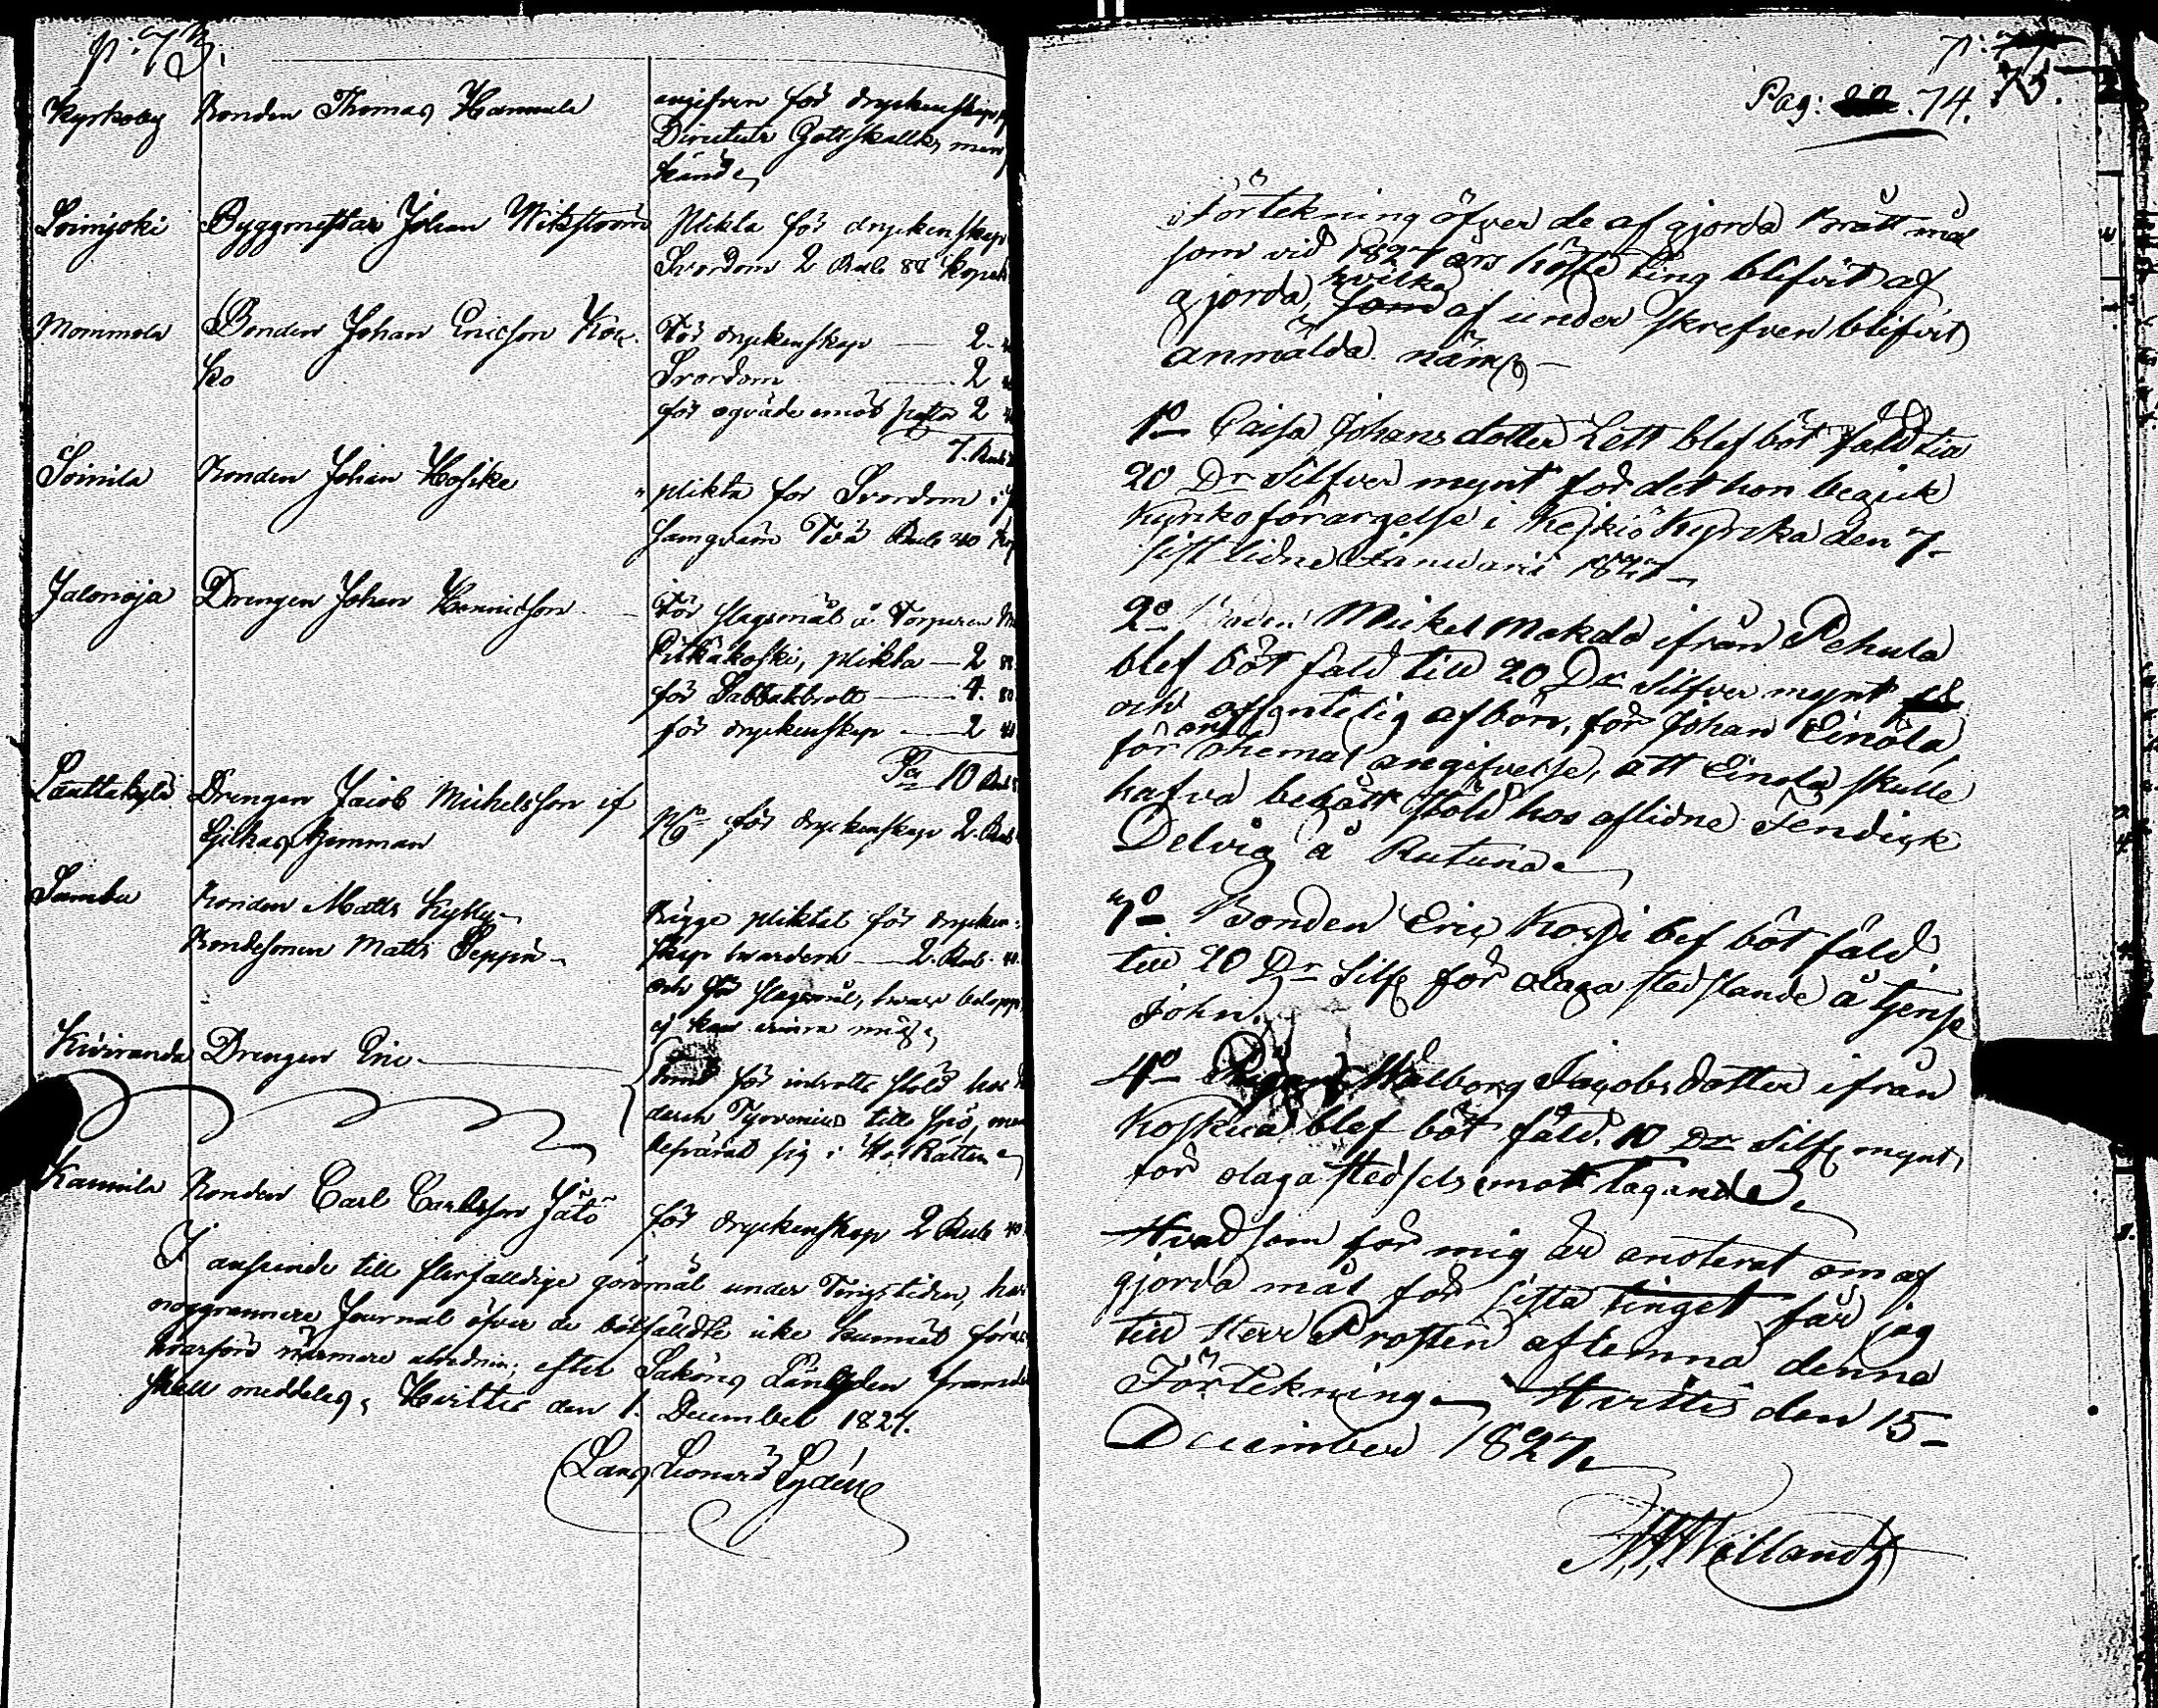 p: 73.
Kyrkoby Bonden Thomas Hannula angifven för dryckenskap
Directeur Gottskalk, men
kände
Loimijoki Byggmestar Johan Wikström Plikta för dryckenskap
Svordom 2 Rub 88 kopek
Mommola Bonden Johan Ericsson För dryckenskap — 2
Svordom — 2
för ogväde emot 2
7. Rub
Loimila Bonden Johan Hosike plikta för Svordom i
Samqväm Två Rub 40 Kop
Jalonoja Drengen Johan Henricsson För slagsmål å Torparen
Pitkäkoski, plikta — 2
för Sabbatsbrott — 4. 80
för dryckenskap — 2
Sa 10 Rub
Lauttakylä Drengen Jacob Michelsson if
för dryckenskap 2. Rub
Samba Bonden Matts Kylly
Bondesonen Matts Seppä
Bägge pliktat för drycken-
skap hvardera — 2. Rub. 40.
och för slagsmål, hvars belopp
ej kan erinra mig
Kiviranda Drengen Eric
för inbrotts stöld hos
Tyrvenius till Spö, men
befvärat sig i Hof Rätten
Kaunila Bonden Carl Carlsson Jätö för dryckenskap 2 Rub 40
I anseende till flerfalldige göromål under Tingstiden, har
noggrannare Journal öfver de bötfälldte icke kunnat föras
hvarföre närmare utredning, efter Saköres Längden framdeles
skall meddelas, Hvittis den 1. December 1827.
Lars Leonard Lydén
Pag: 74. 75.
Förtekning öfver de af gjorda Brått mål
som vid 1827 års höste ting blifvit af
gjorda, hvilka som af under skrefven blifvit
anmälda näml
1o Caisa Johans dotter Lett blef böt fäld till
20 Dr Silfver mynt för det hon begick
Kyrko förargelse i Keikiö Kyrcka den 7
sist lidne Januari 1827
2o Mickel Makala ifrån Pehula
blef böt fäld till 20 Dr Silfver mynt
och offentelig afbön, för Johan Einola
för ohemal angifvelse, att Einola skulle
hafva begått stöld hos aflidne Fendrick
Delvig å Rutuna
3o Bonden Eric Korpi blef böt fäld
till 20 Dr Silf för olaga stedslande å tjensе
John.
4o Pigan Walborg Jacobs dotter ifrån
Koskua blef böt fäld. 10 Dr Silf mynt
för olaga stedsels emot tagande
Hvad som för mig är anoterat om af
gjorda mål för sista tinget får jag
till Herr Prosten aflemna denna
Förtekning Hvittis den 15
December 1827
Willandt